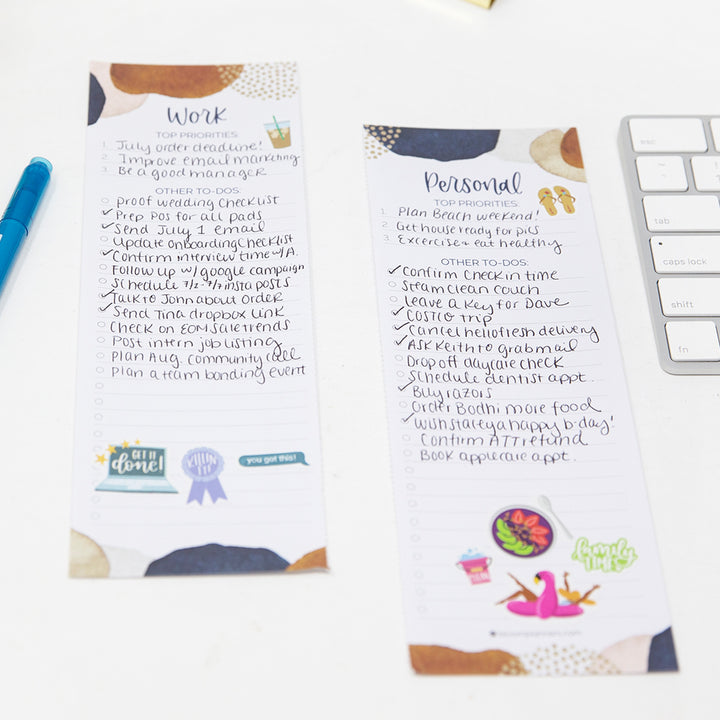 Work
TOP PRIORITIES:
1. July order deadline!
2. Improve email marketing
3. Be a good manager
OTHER TO-DOS:
Proof wedding checklist
Prep POs for all pads
Send July 1 email
Update onboarding checklist
Confirm interview time w/A.
Follow up w/ google campaign
Schedule 7/2-7/7 insta posts
Talk to John about order
Send Tina dropbox link
Check on EOM sale trends
Post intern job listing
Plan Aug. community call
Plan a team bonding event
GET IT
done!
KILLIN'
IT!
you got this!
Personal
TOP PRIORITIES:
1. Plan Beach weekend!
2. Get house ready for pics
3. Excercise + eat healthy
OTHER TO-DOS:
Confirm check in time
Steam clean couch
leave a key for Dave
COSTCO trip
Cancel hellofresh delivery
Ask Keith to grab mail
Drop off daycare check
Schedule dentist appt.
Buy razors
Order Bodhi more food
Wish Staley a happy b-day!
Confirm ATT refund
Book applecare appt.
family
TIME
bloomplanners.com
esc
tab
caps lock
shift
fn